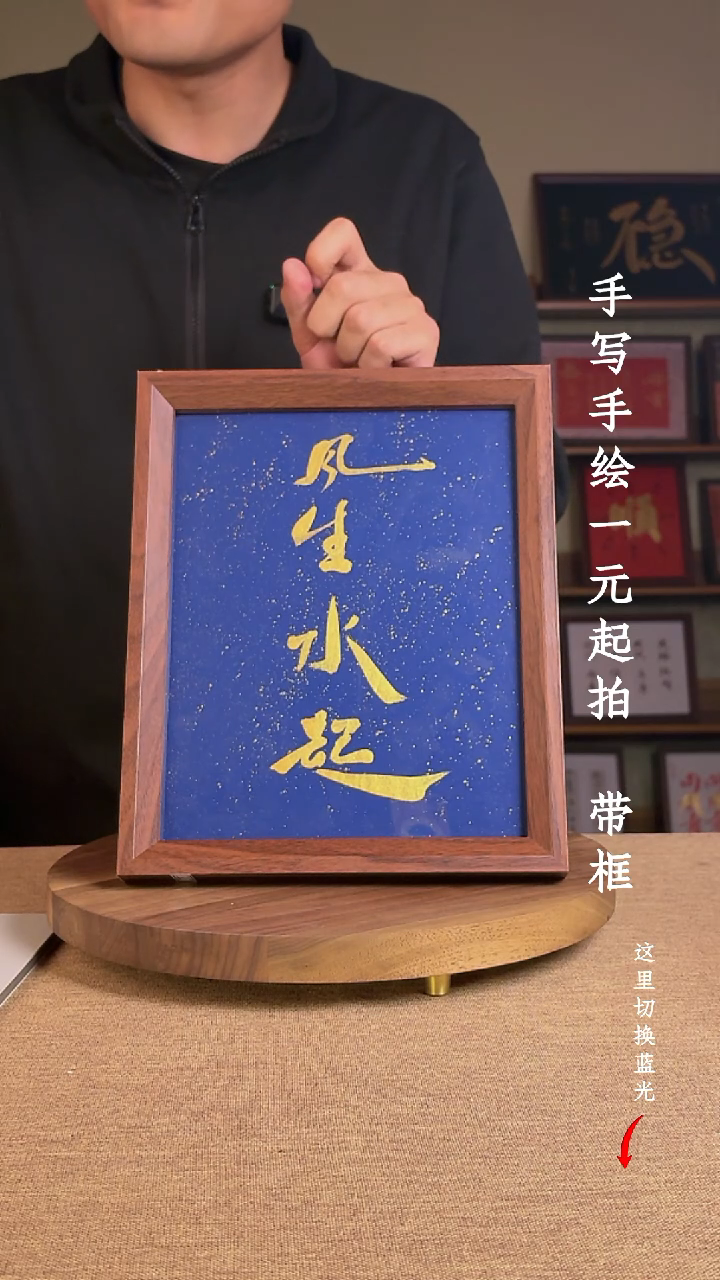 風生水起
手写手绘一元起拍 带框
这里切换蓝光
隐
順